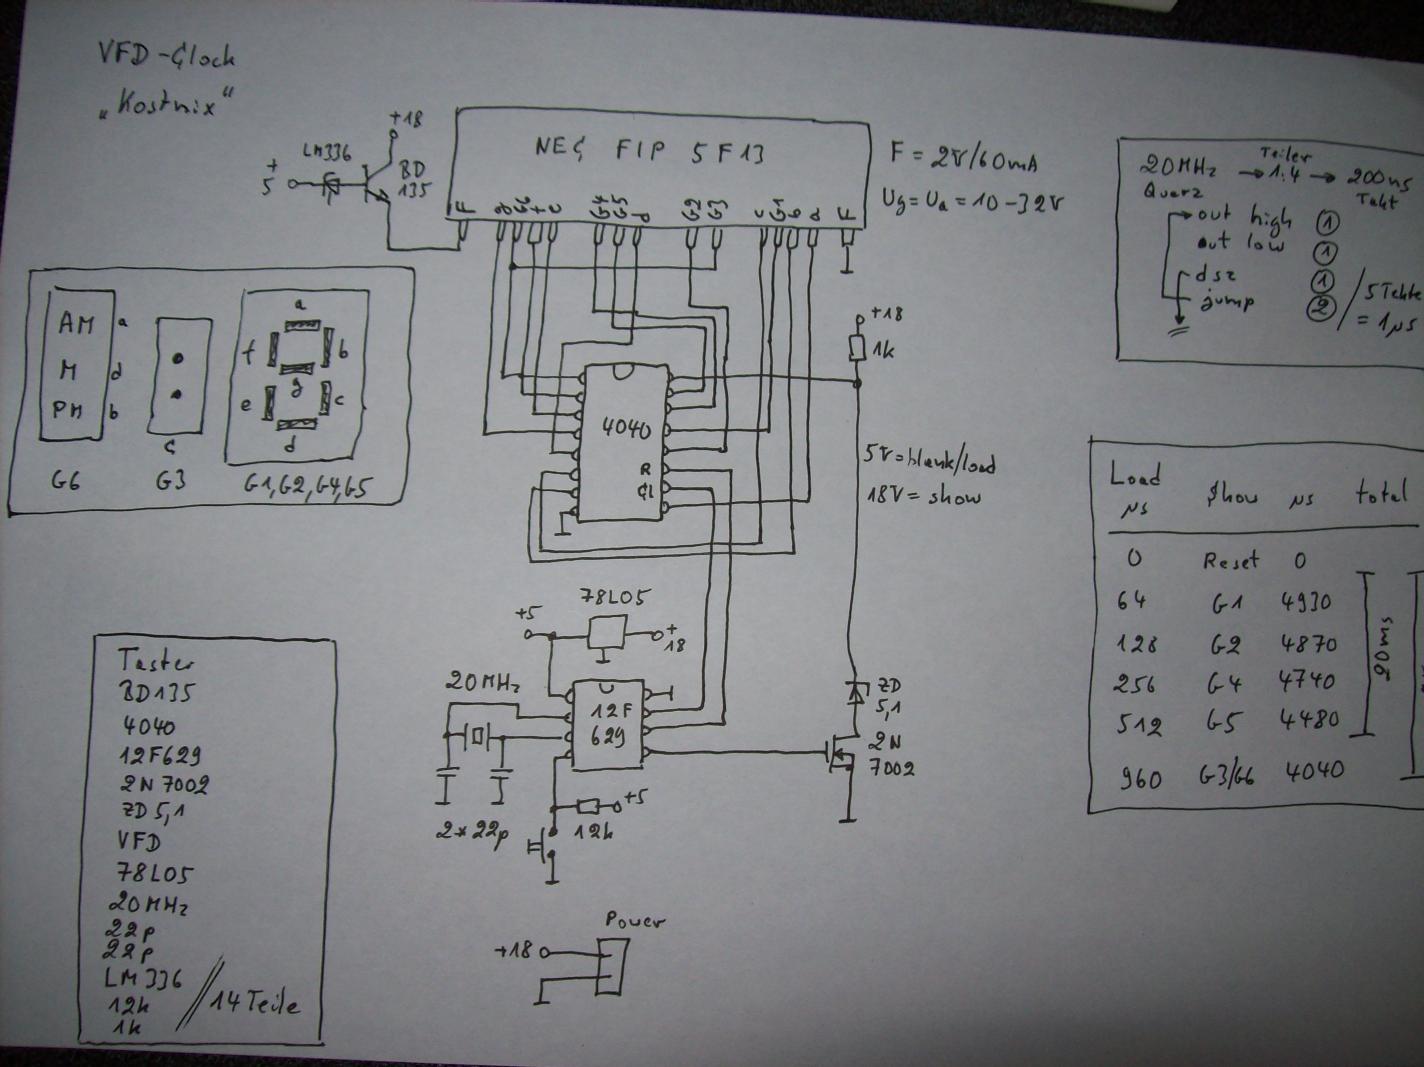 VFD-Clock
„Kostnix“
+18
LM336
+
5
BD
135
NEC FIP 5F13
F g G6 f e G4 G5 d G2 G3 c G1 b a F
F = 2V/60mA
Ug = Ua = 10-32V
20MHz → Teiler 1:4 → 200ns
Quarz Takt
out high 1
out low 1
dsz 1
jump 2
/ 5 Takte
= 1µs
AM a
M d
PM b
G6
c
G3
a
f b
g
e c
d
G1,G2,G4,G5
+18
1k
4040
R
Cl
5V=blank/load
18V=show
Load Show µs total
µs
0 Reset 0
64 G1 4930
128 G2 4870
256 G4 4740
512 G5 4480
960 G3/G6 4040
20ms
78L05
+5
+
18
20MHz
12F
629
ZD
5,1
2N
7002
2*22p
12k
+5
Power
+18
Taster
BD135
4040
12F629
2N7002
ZD5,1
VFD
78L05
20MHz
22p
22p
LM336
12k
1k
// 14 Teile